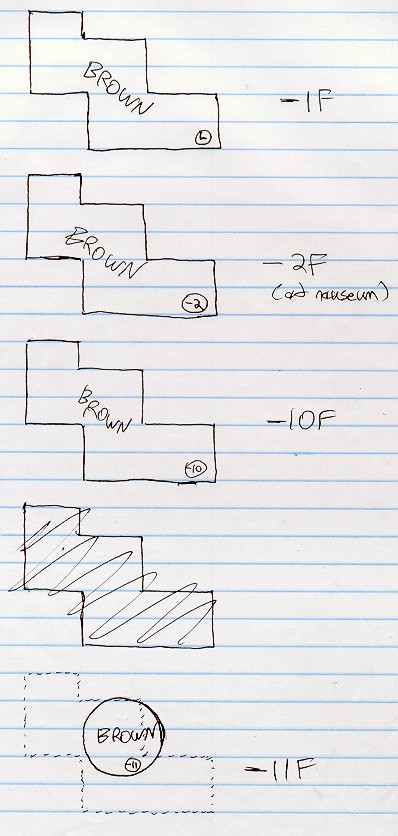 BROWN
-1F
BROWN
-2
-2F
(ad nauseum)
BROWN
-10
-10F
BROWN
-11
-11F